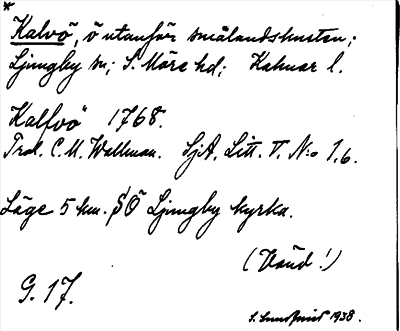 *
Kalvö, ö utanför smålandskusten;
Ljungby sn; S. Möre hd; Kalmar l.
Kalfvö 1768.
Prot. C. M. Wallman. SjA. Litt. V. N:o 16.
Läge 5 km. SÖ Ljungby kyrka.
(Vänd!)
G. 17.
S. Lundqvist 1938.